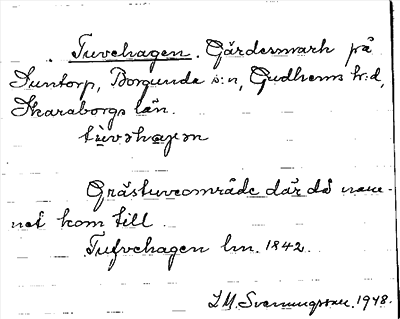 Tuvehagen. Gärdesmark på
Suntorp, Borgunda s:n, Gudhems h:d,
Skaraborgs län.
tùvəhɑ̀gən
Grästuveområde där då nam-
net kom till.
Tufvehagen lm. 1842.
I.M. Svenungsson. 1948.